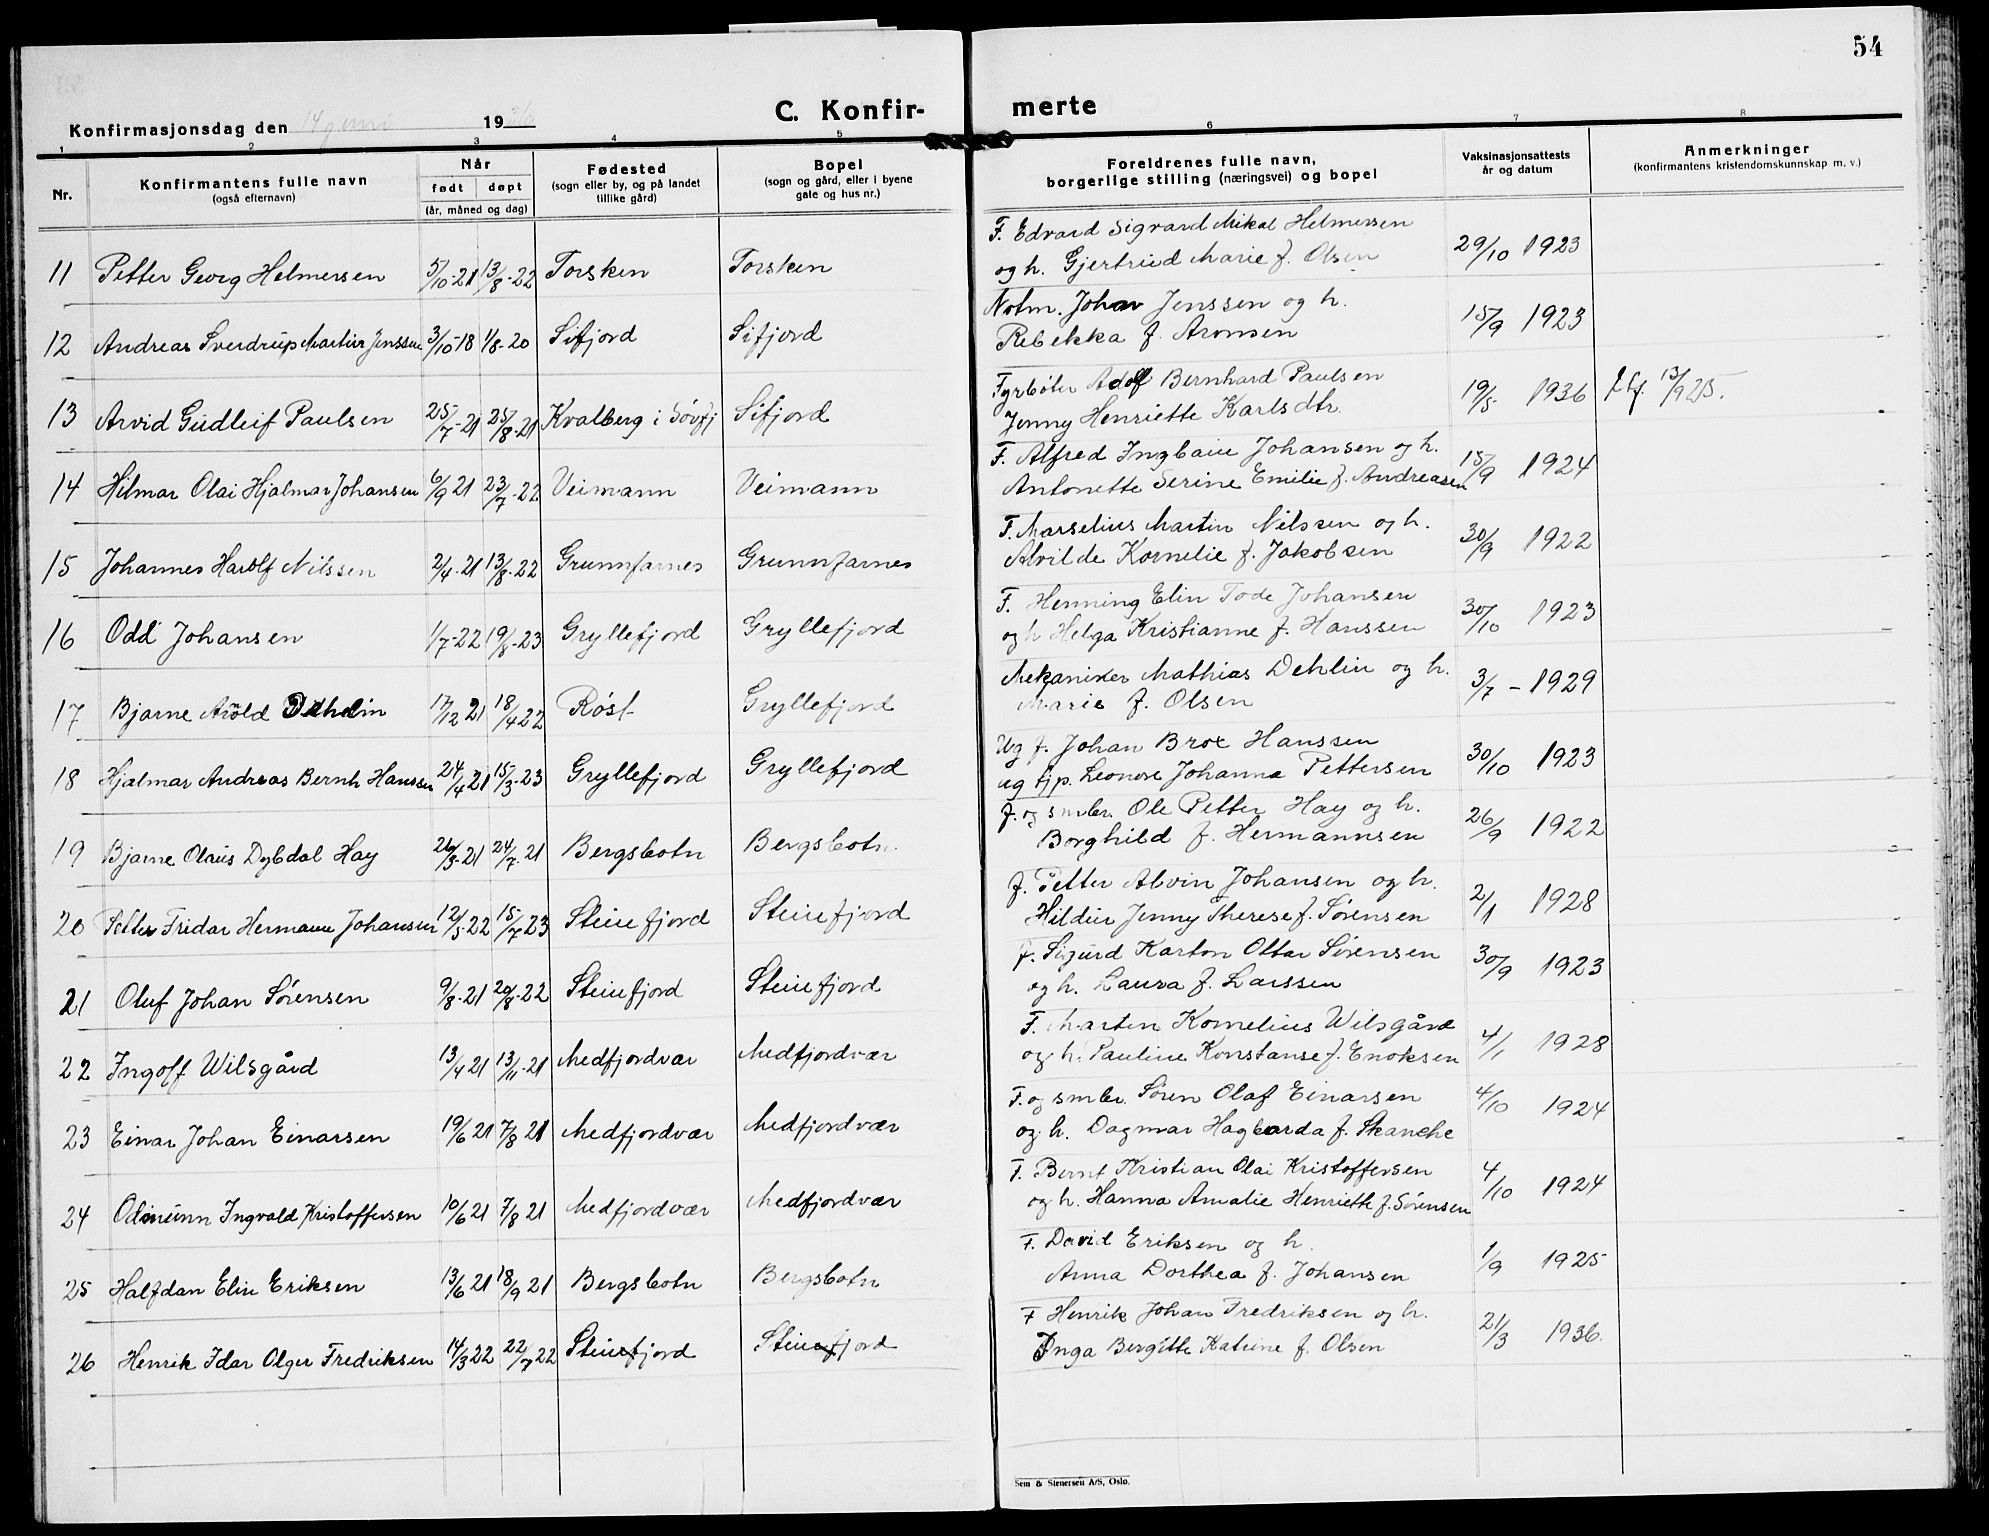 54
C. Konfirmerte
Konfirmasjonsdag den 14 juni 1936
1 2 3 4 5 6 7 8
Nr.
Konfirmantens fulle navn
(også efternavn)
Når
født døpt
(år, måned og dag)
Fødested
(sogn eller by, og på landet
tillike gård)
Bopel
(sogn og gård, eller i byene
gate og hus nr.)
Foreldrenes fulle navn,
borgerlige stilling (næringsvei) og bopel
Vaksinasjonsattests
år og datum
Anmerkninger
(konfirmantens kristendomskunnskap m. v.)
F. Edvard Sigvard Mikal Helmersen
11 Petter Georg Helmersen 5/10-21 13/8-22 Torsken Torsken og h. Gjertrud Marie f. Olsen 29/10 1923
Notm. Johan Jenssen og h.
12 Andreas Sverdrup Martin Jenssen 3/10-18 1/8-20 Sifjord Sifjord Rebekka f. Aronsen 15/9 1923
Fyrbøter Adolf Bernhard Paulsen
13 Arvid Gudleif Paulsen 25/7-21 25/8-21 Kvalberg i Sørfj Sifjord Jenny Henriette Karlsdtr. 19/5 1936 13/9 25.
F. Alfred Ingbain Johansen og h.
14 Hilmar Olai Hjalmar Johansen 6/9 21 23/7-22 Veimann Veimann Antonette Serine Emilie f. Andreasen 15/9 1924
F. Marselius Martin Nilssen og h.
15 Johannes Harolf Nilssen 2/4-21 13/8-22 Grunnfarnes Grunnfarnes Alvilde Kornelie f. Jakobsen 30/9 1922
F. Henning Elin Tode Johansen
16 Odd Johansen 1/7-22 19/8-23 Gryllefjord Gryllefjord og h Helga Kristianne f. Hanssen 30/10 1923
Mekaniker Mathias Dehlin og h.
17 Bjarne Arold Dehlin 17/12 21 18/4-22 Røst Gryllefjord Marie f. Olsen 3/7 - 1929
Ug f. Johan Brox Hanssen
18 Hjalmar Andreas Bernh Hanssen 24/4 21 15/3-23 Gryllefjord Gryllefjord ug tjp. Leonore Johanna Pettersen 30/10 1923
f. og smbr. Ole Petter Hay og h.
19 Bjarne Olaus Dybdal Hay 26/3-21 24/7-21 Bergsbotn Bergsbotn. Borghild f. Hermannsen 26/9 1922
f. Petter Alvin Johansen og h.
20 Petter Fridar Hermann Johansen 12/5-22 15/7 23 Steinefjord Steinefjord Hildur Jenny Therese f. Sørensen 2/1 1928
f. Sigurd Karton Ottar Sørensen
21 Oluf Johan Sørensen 9/8-21 20/8-22 Steinefjord Steinefjord og h. Laura f. Larssen 30/9 1923
F. Marten Kornelius Wilsgård
22 Ingolf Wilsgård 13/4 21 13/11-21 Medfjordvær Medfjordvær og h. Pauline Konstanse f. Enoksen 4/1 1928
F. og smbr. Søren Olaf Einarsen
23 Einar Johan Einarsen 19/6 21 7/8 21 Medfjordvær Medfjordvær og h. Dagmar Hagbarda f. Skanche 4/10 1924
F. Bernt Kristian Olai Kristoffersen
24 Odmunn Ingvald Kristoffersen 10/6 21 7/8 21 Medfjordvær Medfjordvær og h. Hanna Amalie Henriette f. Sørensen 4/10 1924
F. David Eriksen og h.
25 Halfdan Elin Eriksen 13/6 21 18/9 21 Bergsbotn Bergsbotn Anna Dorthea f. Johansen 1/9 1925
F Henrik Johan Fredriksen og h.
26 Henrik Idar Olger Fredriksen 14/3 22 22/7 22 Steinefjord Steinefjord Inga Bergitte Katrine f. Olsen 21/3 1936.
Sem & Stenersen A/S, Oslo.